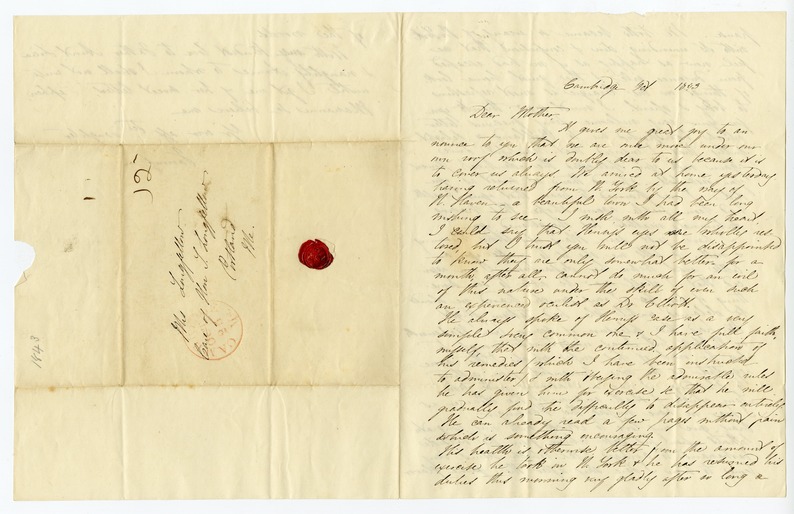 12
Mrs Longfellow
Care of Hon S Longfellow
Portland
Me.
1843
Cambridge Oct 1843
Dear Mother,
It gives me great joy to an
nounce to you that we are once more under our
own roof which is doubly dear to us because it is
to cover us always. We arrived at home yesterday
having returned from N. York by the way of
N. Haven – a beautiful town I had been long
wishing to see. I wish with all my heart
I could say that Henry's eyes are wholly res
tored, but I trust you will not be disappointed
to know they are only somewhat better, for a
month, after all, cannot do much for an evil
of this nature under the skill of even such
an experienced oculist as Dr Elliott.
He always spoke of Henry's case as a very
simple & very common one & I have full faith,
myself, that with the continued application of
the remedies, which I have been instructed
to administer, & with obeying the admirable rules
he has given him for exercise &c that he will
gradually find the difficulty to disappear entirely.
He can already read a few pages without pain
which is something encouraging.
His health is otherwise better from the amount of
exercise he took in N. York & he has resumed his
duties this morning very gladly after so long a